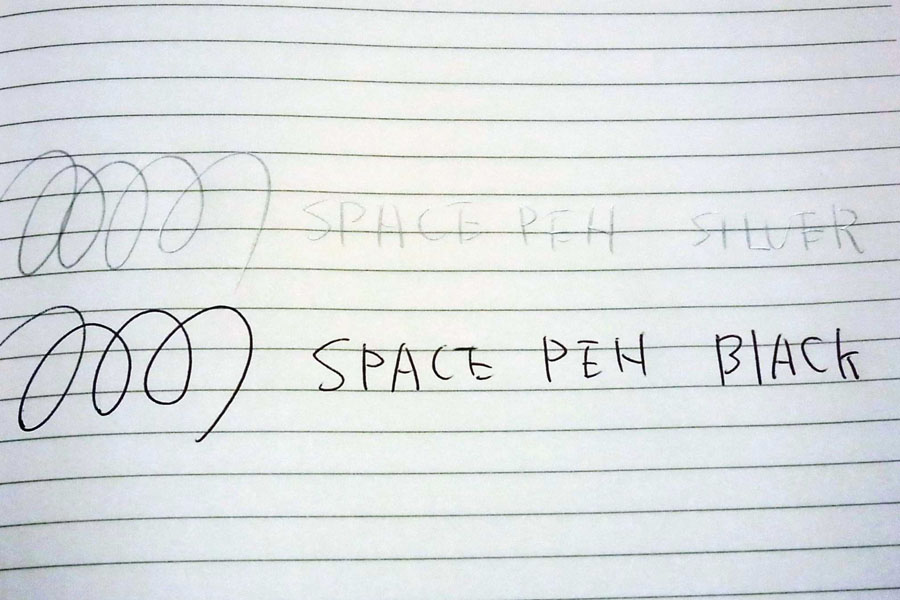 SPACE PEN SILVER
SPACE PEN BlACk